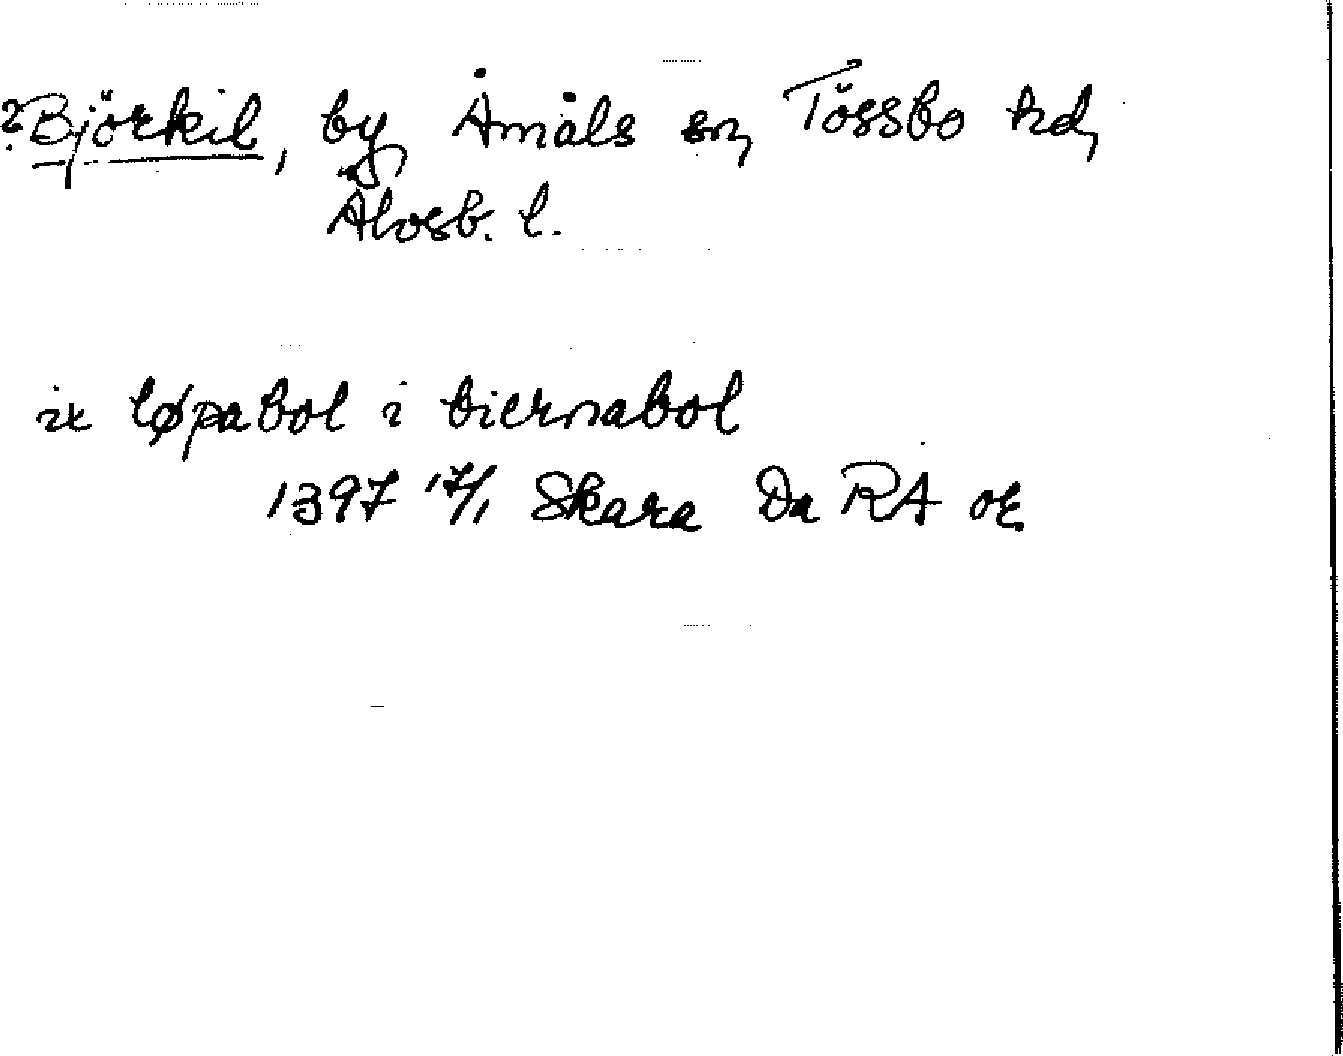 ?Björkil, by, Åmåls sn, Tössbo hd,
Älvsb. l.
ix løpabol i biernabol
1397 17/1 Skara Da RA or.